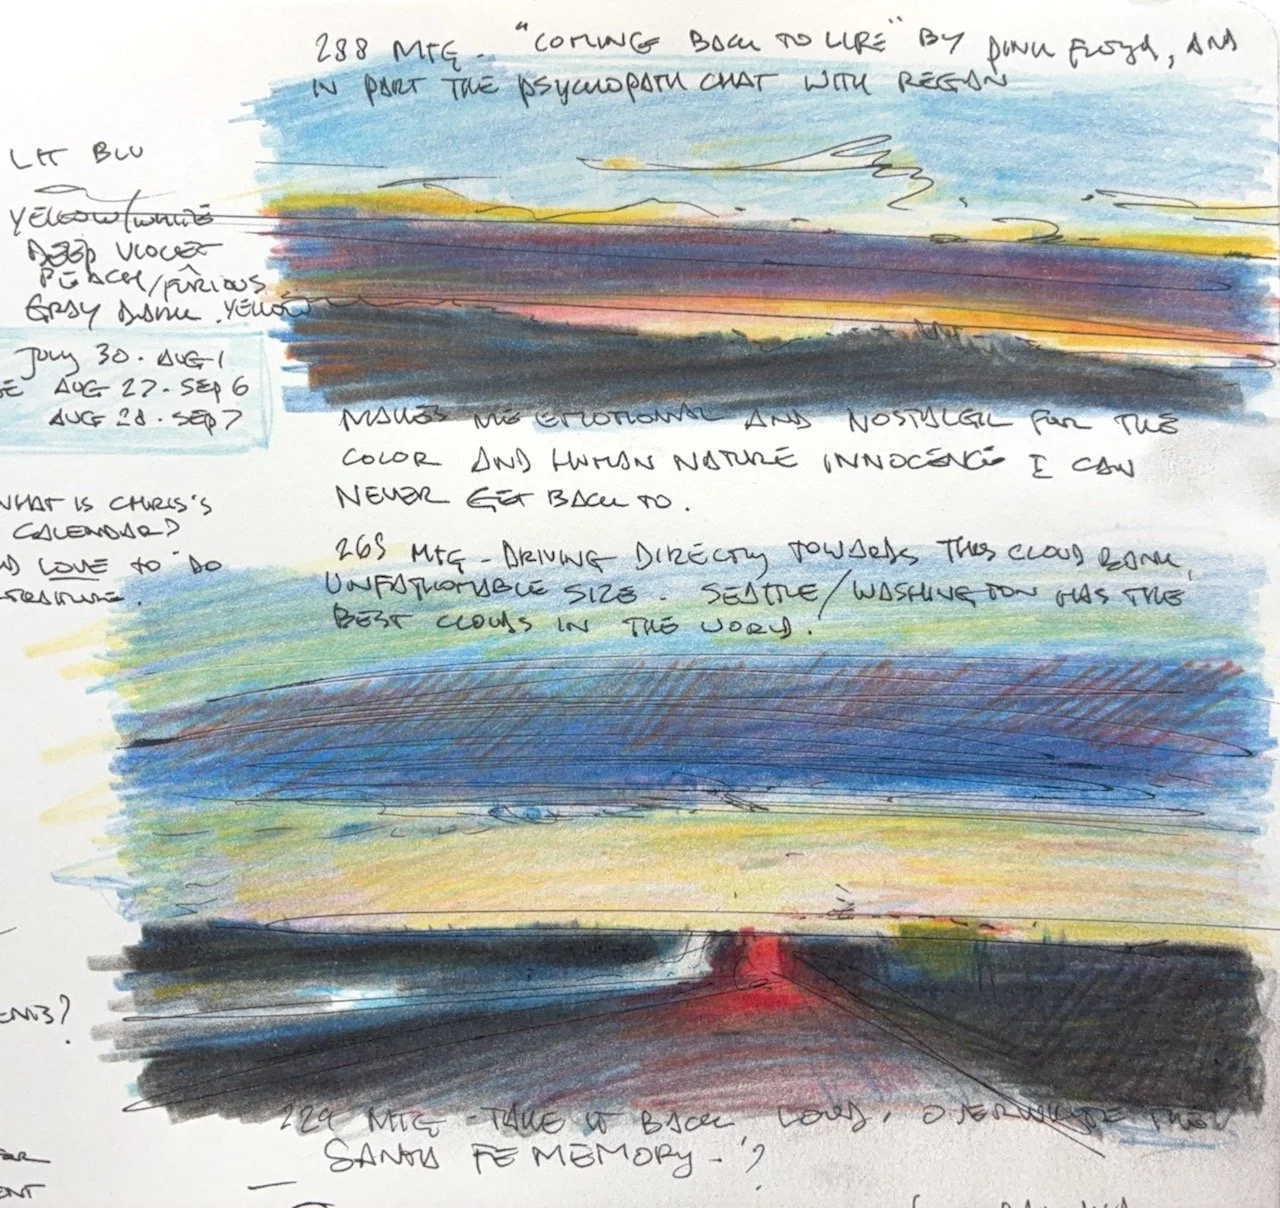 288 MTG - "COMING BACK TO LIFE" BY PINK FLOYD, AND
IN PART THE PSYCHOPATH CHAT WITH REGAN
LHT BLU
YELLOW/WHITE
DEEP VIOLET
PEACH/FURIOUS
GRAY DARK YELLOW
JULY 30 - AUG 1
AUG 27 - SEP 6
AUG 28 - SEP 7
MAKES ME EMOTIONAL AND NOSTALGIC FOR THE
COLOR AND HUMAN NATURE INNOCENCE I CAN
NEVER GET BACK TO.
WHAT IS CHRIS'S
CALENDAR?
LOVE TO DO
265 MTG - DRIVING DIRECTLY TOWARDS THIS CLOUD BANK,
UNFATHOMABLE SIZE. SEATTLE/WASHINGTON HAS THE
BEST CLOUDS IN THE WORLD.
229 MTG - TAKE IT BACK LOUD, OVERWRITE THE
SANTA FE MEMORY - ?